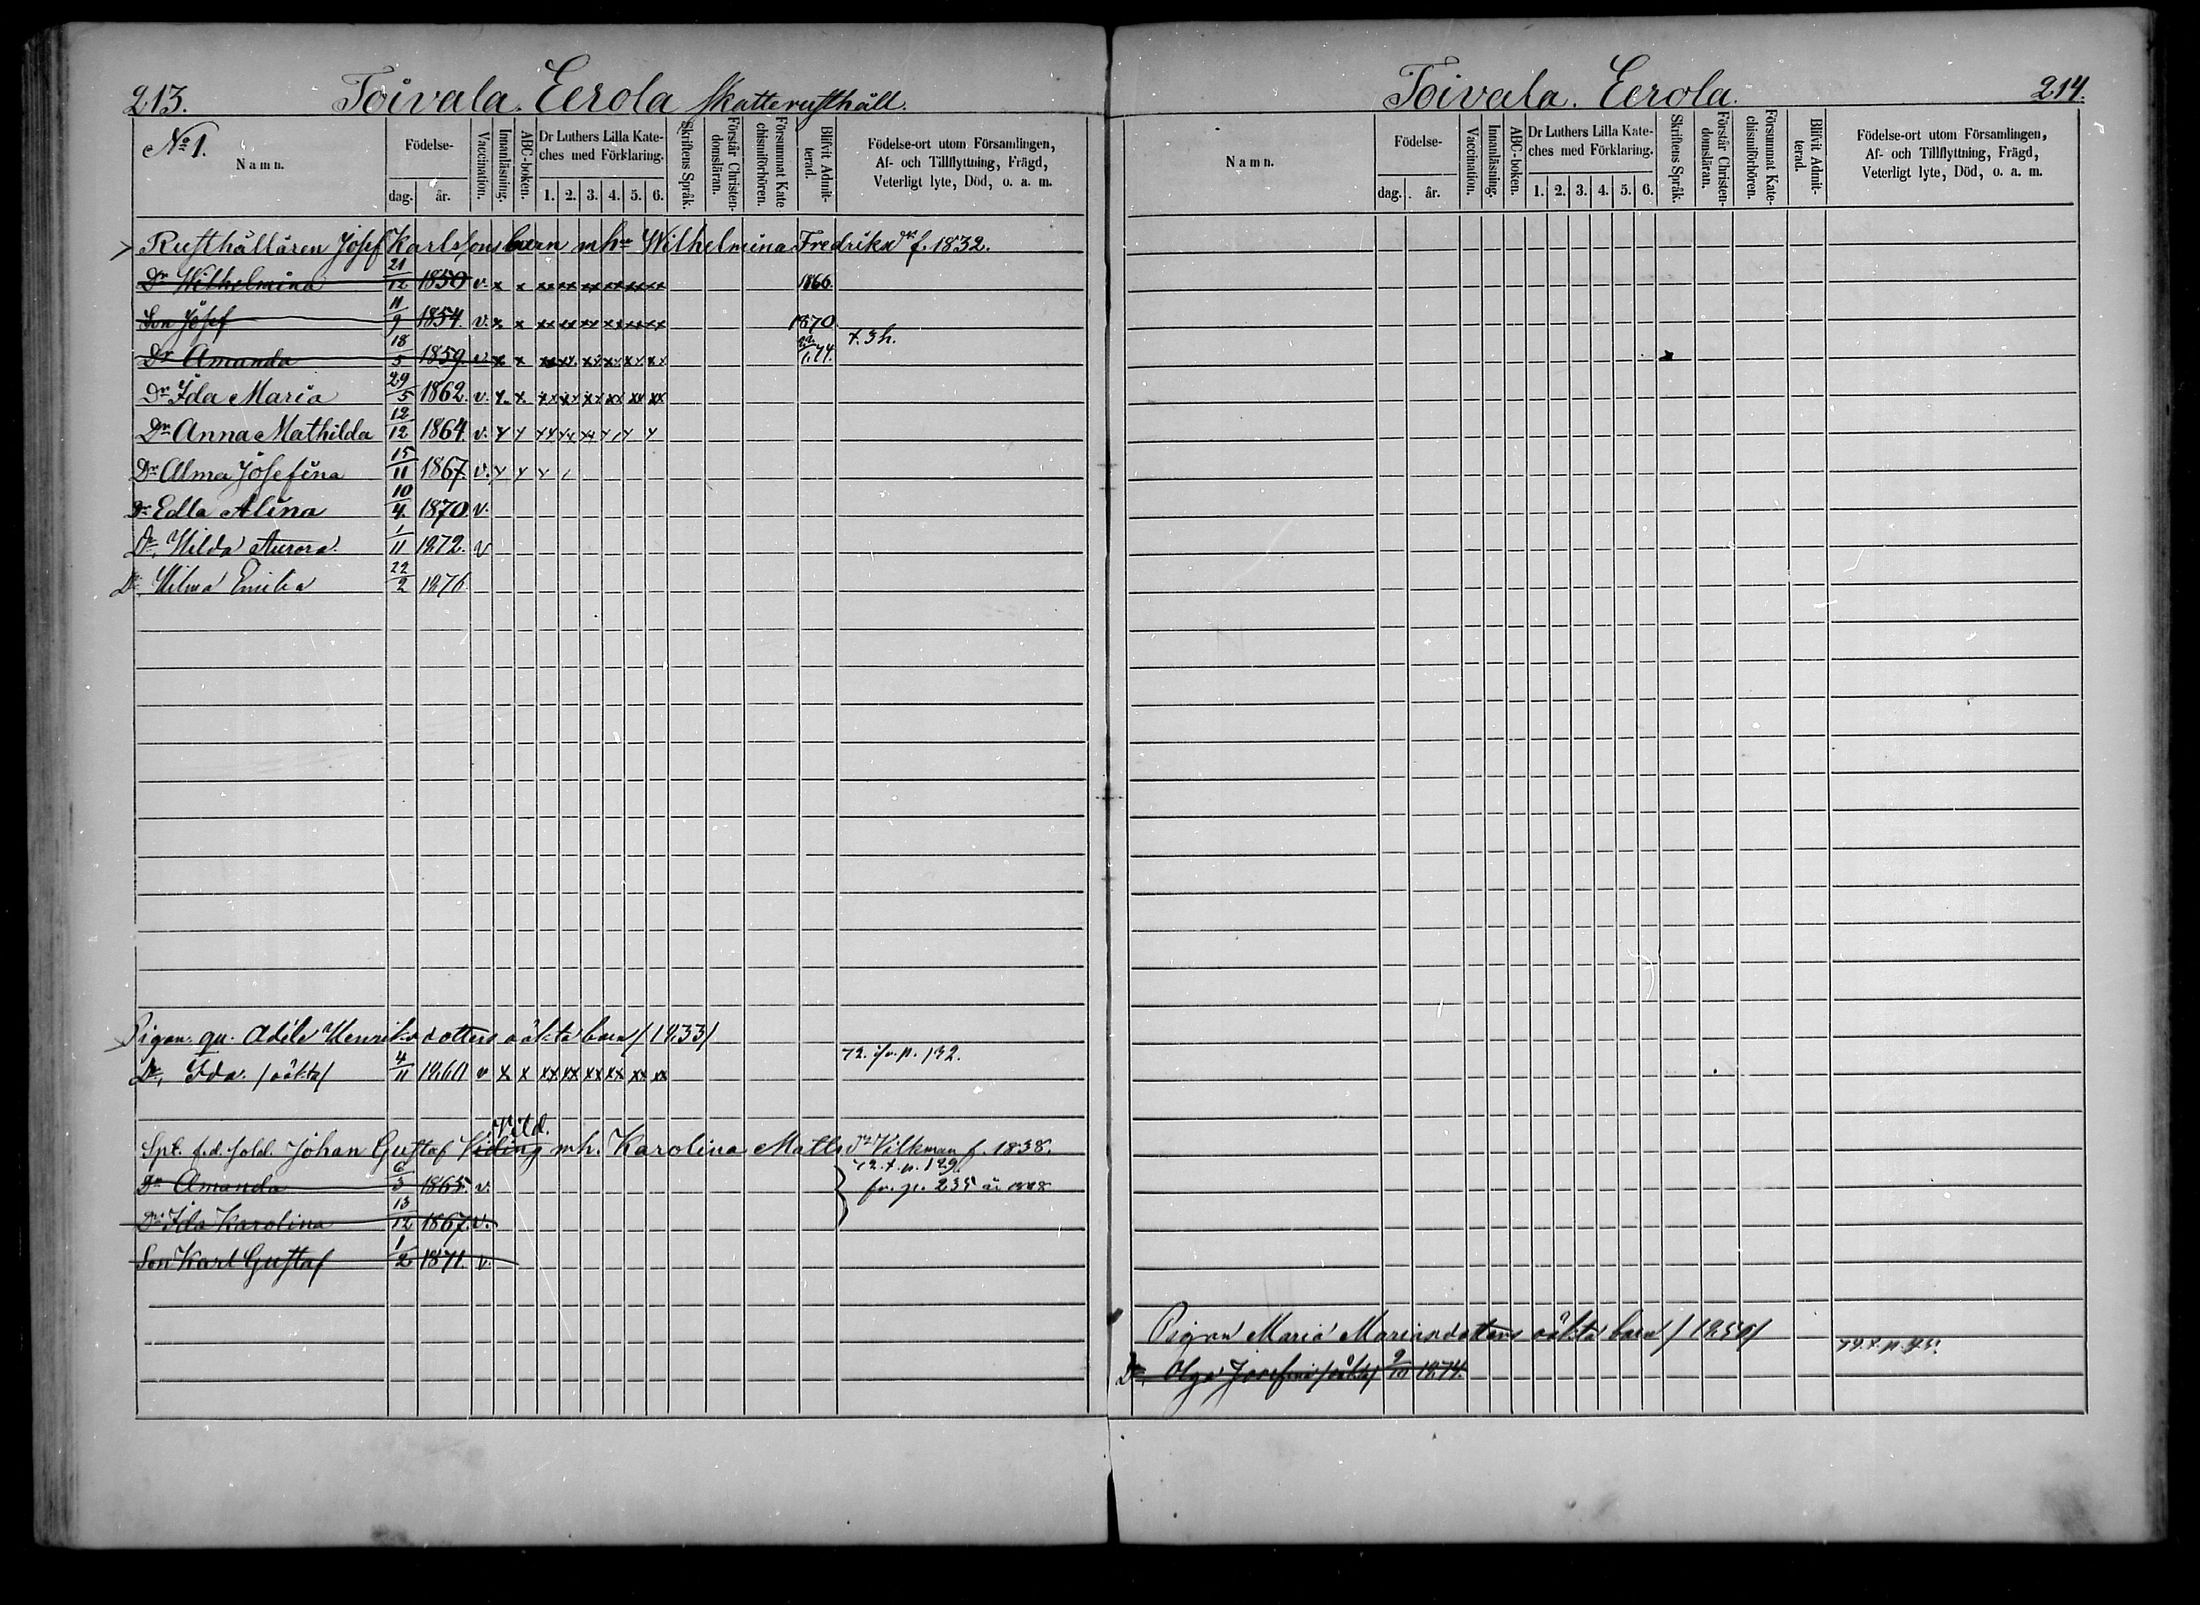 213. Toivala. Eerola Skatterusthåll.
No 1.
Namn.
Födelse-
dag. år.
Vaccination.
Innanläsning.
ABC-boken.
Dr Luthers Lilla Kate-
ches med Förklaring.
1. 2. 3. 4. 5. 6.
Skriftens Språk.
Förstår Christen-
domsläran.
Försummat Kate-
chismiförhören.
Blifvit Admit-
terad.
Födelse-ort utom Församlingen,
Af- och Tillflyttning, Frägd,
Veterligt lyte, Död, o. a. m.
Rusthållaren Josef Karlssons barn m hu Wilhelmina Fredriksdr f. 1832.
Dr Wilhelmina 21/12 1850 v. x x xx xx xx xx xx xx 1866
Son Josef 11/9 1854. v. x x xx xx xx xx xx xx 1870
Dr Amanda 18/5 1859. v. x x xx xx xx xx xx xx 22/6.74. t. 3 h.
Dr Ida Maria 29/5 1862. v. x. x. xx xx xx xx xx xx
Dr Anna Mathilda 12/12 1864. v. x x
Dr Alma Josefina 15/11 1867. v. x x x
Dr Edla Alina 10/4. 1870 v.
Dr, Hilda Aurora. 1/11 1872. v
Dr, Hilma Emilia 22/2 1876.
Pigan. qu. Adèle Henriksdotters oäkta barn /1833/
Dr, Ida. /oäkta/ 4/11 1860 v x x xx xx xx xx xx xx 72. ifr. p. 132.
Vild.
Spt. f.d. sold. Johan Gustaf Viding m h. Karolina Matlsdr Vilkman f. 1838.
72. t. p. 129.
Dr Amanda 6/3 1865. v. fr. p. 235
Dr Ida Karolina 13/12 1867. v.
Son Karl Gustaf 1/2 1871. v.
Toivala. Eerola. 214.
Namn.
Födelse-
dag. år.
Vaccination.
Innanläsning.
ABC-boken.
Dr Luthers Lilla Kate-
ches med Förklaring.
1. 2. 3. 4. 5. 6.
Skriftens Språk.
Förstår Christen-
domsläran.
Försummat Kate-
chismiförhören.
Blifvit Admit-
terad.
Födelse-ort utom Församlingen,
Af- och Tillflyttning, Frägd,
Veterligt lyte, Död, o. a. m.
Pigan Maria Mariasdotters oäkta barn /1850/
Dr, Olga Josefina /oäkta/ 9/10 1874.